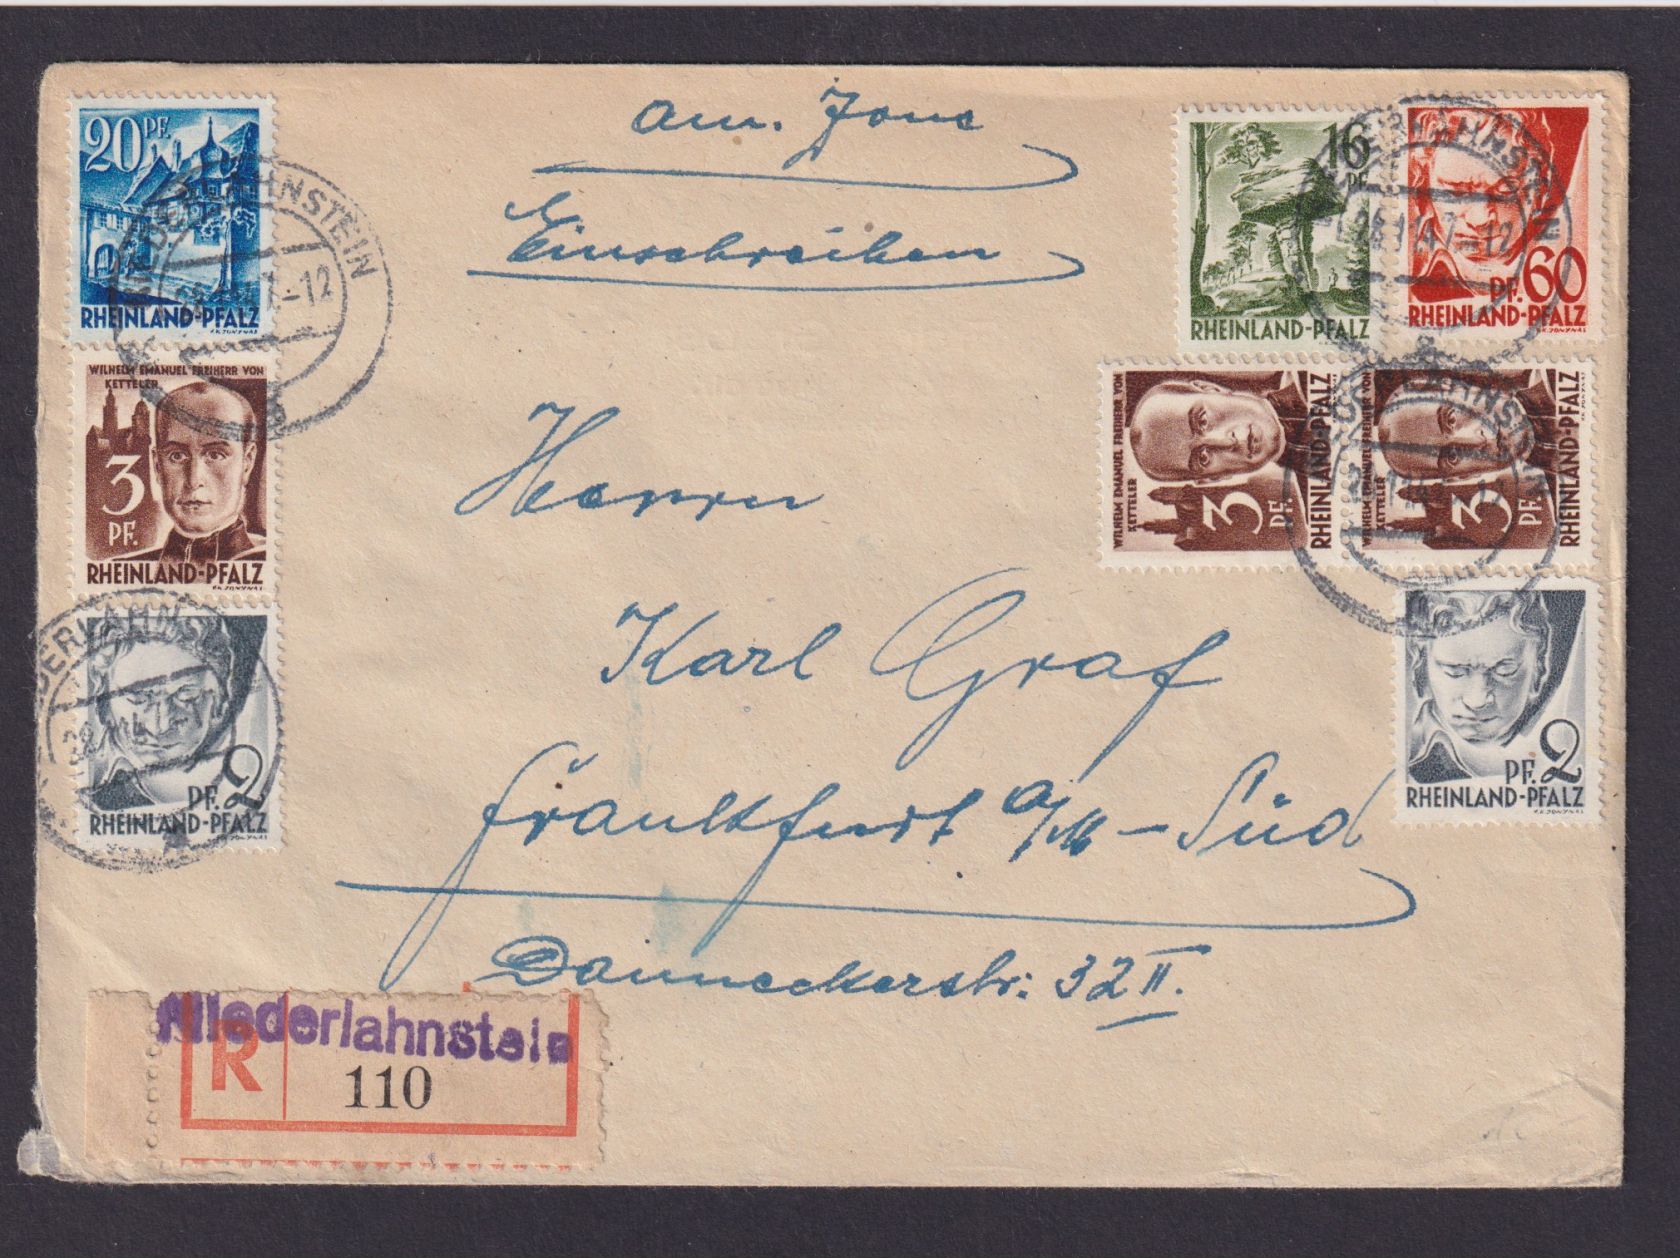 am. Zone
Einschreiben
Herrn
Karl Graf
Frankfurt a/M - Süd
Danneckerstr. 32 II.
20 PF.
RHEINLAND-PFALZ
V.K. JONYNAS
WILHELM EMANUEL FREIHERR VON
KETTELER
3
PF.
RHEINLAND-PFALZ
V.K. JONYNAS
PF. 2
RHEINLAND-PFALZ
V.K. JONYNAS
16
PF.
RHEINLAND-PFALZ
PF. 60
RHEINLAND-PFALZ
V.K. JONYNAS
WILHELM EMANUEL FREIHERR VON
KETTELER
3
PF.
RHEINLAND-PFALZ
WILHELM EMANUEL FREIHERR VON
KETTELER
3
PF.
RHEINLAND-PFALZ
PF. 2
RHEINLAND-PFALZ
V.K. JONYNAS
NIEDERLAHNSTEIN
Niederlahnstein
R
110